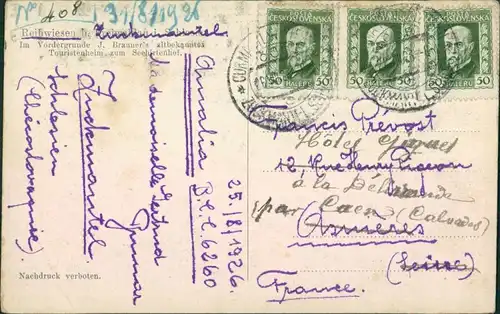 No 408
31/8/1926
Reihwiesen b. Zuckmantel
Im Vordergrunde J. Brauner's altbekanntes
Touristenheim, zum Seehirtenhof.
Amalia B.C.C. 6260
25/8/1926.
Mademoiselle Gertrud
Zuckmantel
Schlesien
(Chécoslovaquie).
Nachdruck verboten.
ČESKOSLOVENSKÁ
50 HALÉŘŮ 50
ČESKOSLOVENSKÁ
50 HALÉŘŮ 50
ČESKOSLOVENSKÁ
50 HALÉŘŮ 50
Francis Prévost
12, Rue Henry
à la Délivrande
par Caen (Calvados)
Asnières
(Seine)
France.